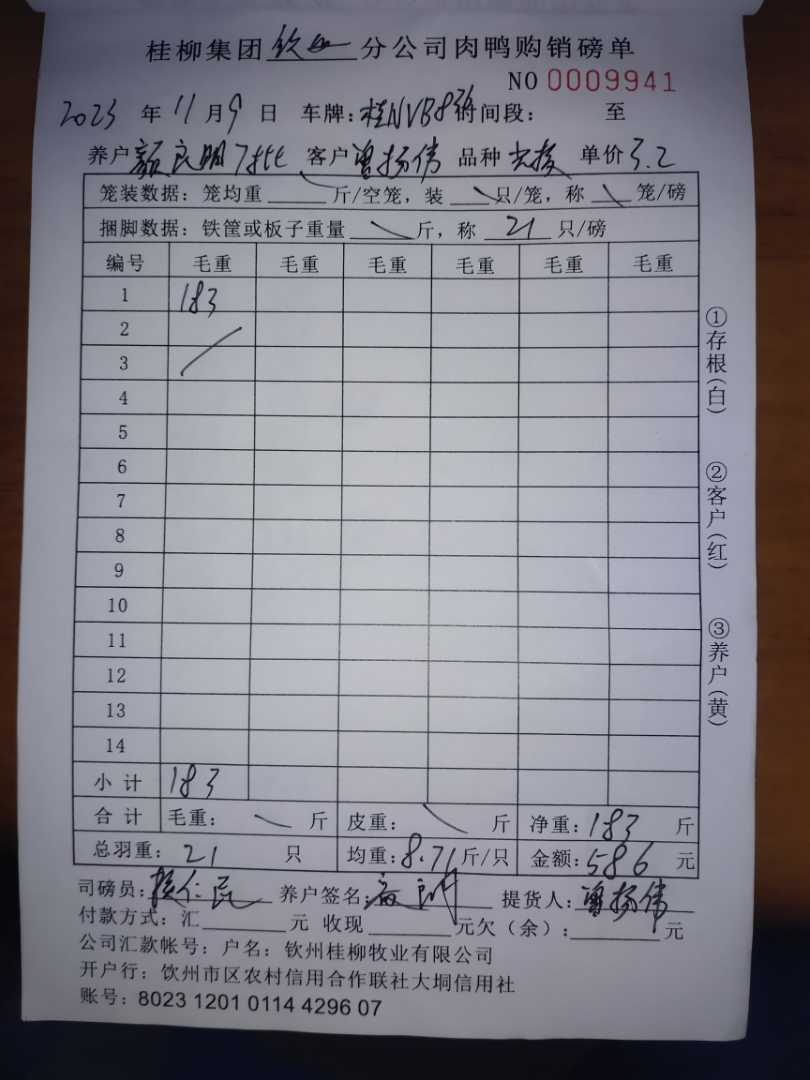 桂柳集团钦州分公司肉鸭购销磅单
NO 0009941
2023 年 11 月 9 日 车牌：桂NVB8 时间段： 至
养户 颜良明7批 客户 曾扬伟 品种 单价 3.2
笼装数据：笼均重 斤/空笼，装 只/笼，称 笼/磅
捆脚数据：铁筐或板子重量 斤，称 21 只/磅
编号 毛重 毛重 毛重 毛重 毛重 毛重
1 183
2
3
4
5
6
7
8
9
10
11
12
13
14
小计 183
合计 毛重： 斤 皮重： 斤 净重：183 斤
总羽重：21 只 均重：8.71 斤/只 金额：586 元
司磅员： 养户签名： 提货人：曾扬伟
付款方式：汇 元 收现 元欠（余）： 元
公司汇款帐号：户名：钦州桂柳牧业有限公司
开户行：钦州市区农村信用合作联社大垌信用社
账号：8023 1201 0114 4296 07
①存根（白）
②客户（红）
③养户（黄）